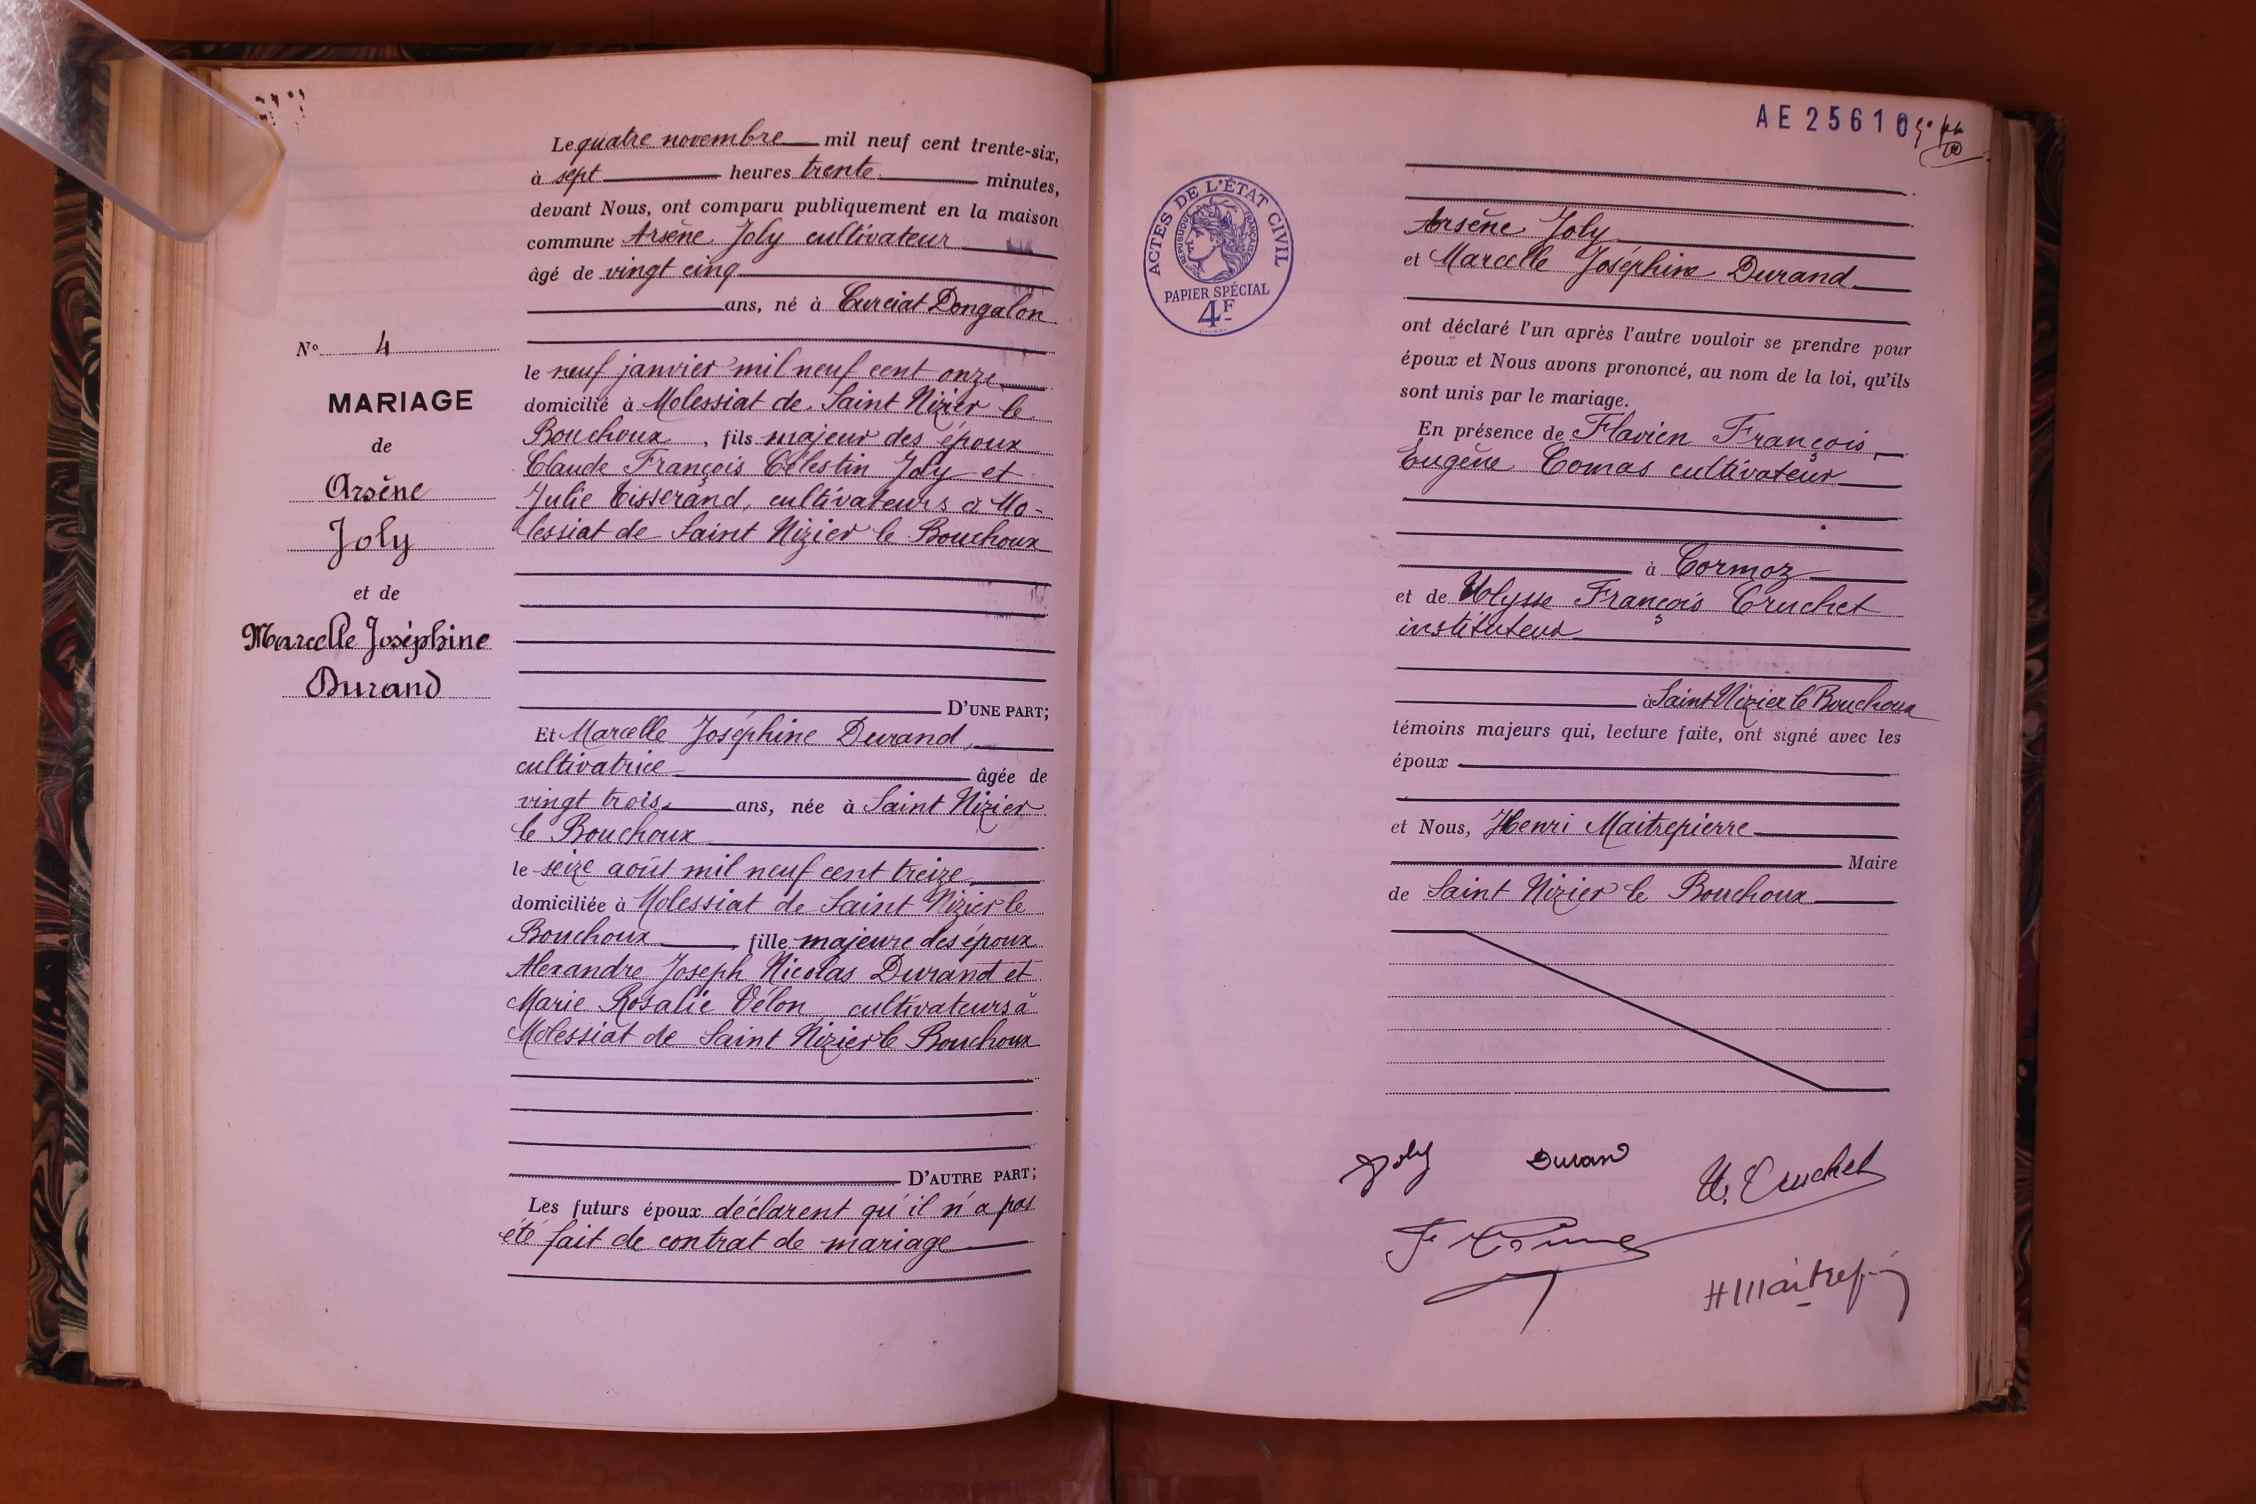 Le quatre novembre mil neuf cent trente-six,
à sept heures trente minutes,
devant Nous, ont comparu publiquement en la maison
commune Arsène Joly cultivateur
âgé de vingt cinq
ans, né à Curciat Dongalon
le neuf janvier mil neuf cent onze
domicilié à Molessiat de Saint Nizier le
Bouchoux, fils majeur des époux
Claude François Célestin Joly et
Julie Tisserand, cultivateurs à Mo-
lessiat de Saint Nizier le Bouchoux
D'UNE PART;
Et Marcelle Joséphine Durand,
cultivatrice âgée de
vingt trois ans, née à Saint Nizier
le Bouchoux
le seize août mil neuf cent treize
domiciliée à Molessiat de Saint Nizier le
Bouchoux, fille majeure des époux
Alexandre Joseph Nicolas Durand et
Marie Rosalie Vélon, cultivateurs à
Molessiat de Saint Nizier le Bouchoux
D'AUTRE PART;
Les futurs époux déclarent qu'il n'a pas
été fait de contrat de mariage
N° 4
MARIAGE
de
Arsène
Joly
et de
Marcelle Joséphine
Durand
AE 25610
ACTES DE L'ÉTAT CIVIL
RÉPUBLIQUE FRANÇAISE
PAPIER SPÉCIAL
4F
Arsène Joly
et Marcelle Joséphine Durand
ont déclaré l'un après l'autre vouloir se prendre pour
époux et Nous avons prononcé, au nom de la loi, qu'ils
sont unis par le mariage.
En présence de Flavien François,
Eugène Comas cultivateur
à Cormoz
et de Ulysse François Cruchet
instituteur
à Saint Nizier le Bouchoux
témoins majeurs qui, lecture faite, ont signé avec les
époux
et Nous, Henri Maitrepierre
Maire
de Saint Nizier le Bouchoux
Joly
Durand
U. Cruchet